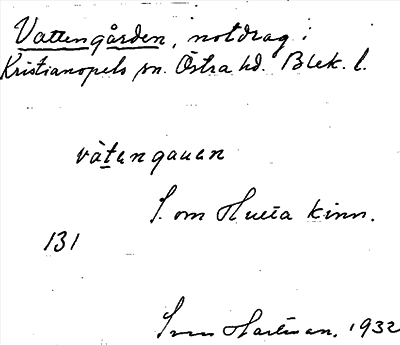 Vattengården, notdrag i
Kristianopels sn. Östra hd. Blek. l.
vàtengauen
S. om Hu kinn.
131
Sven Hartman. 1932